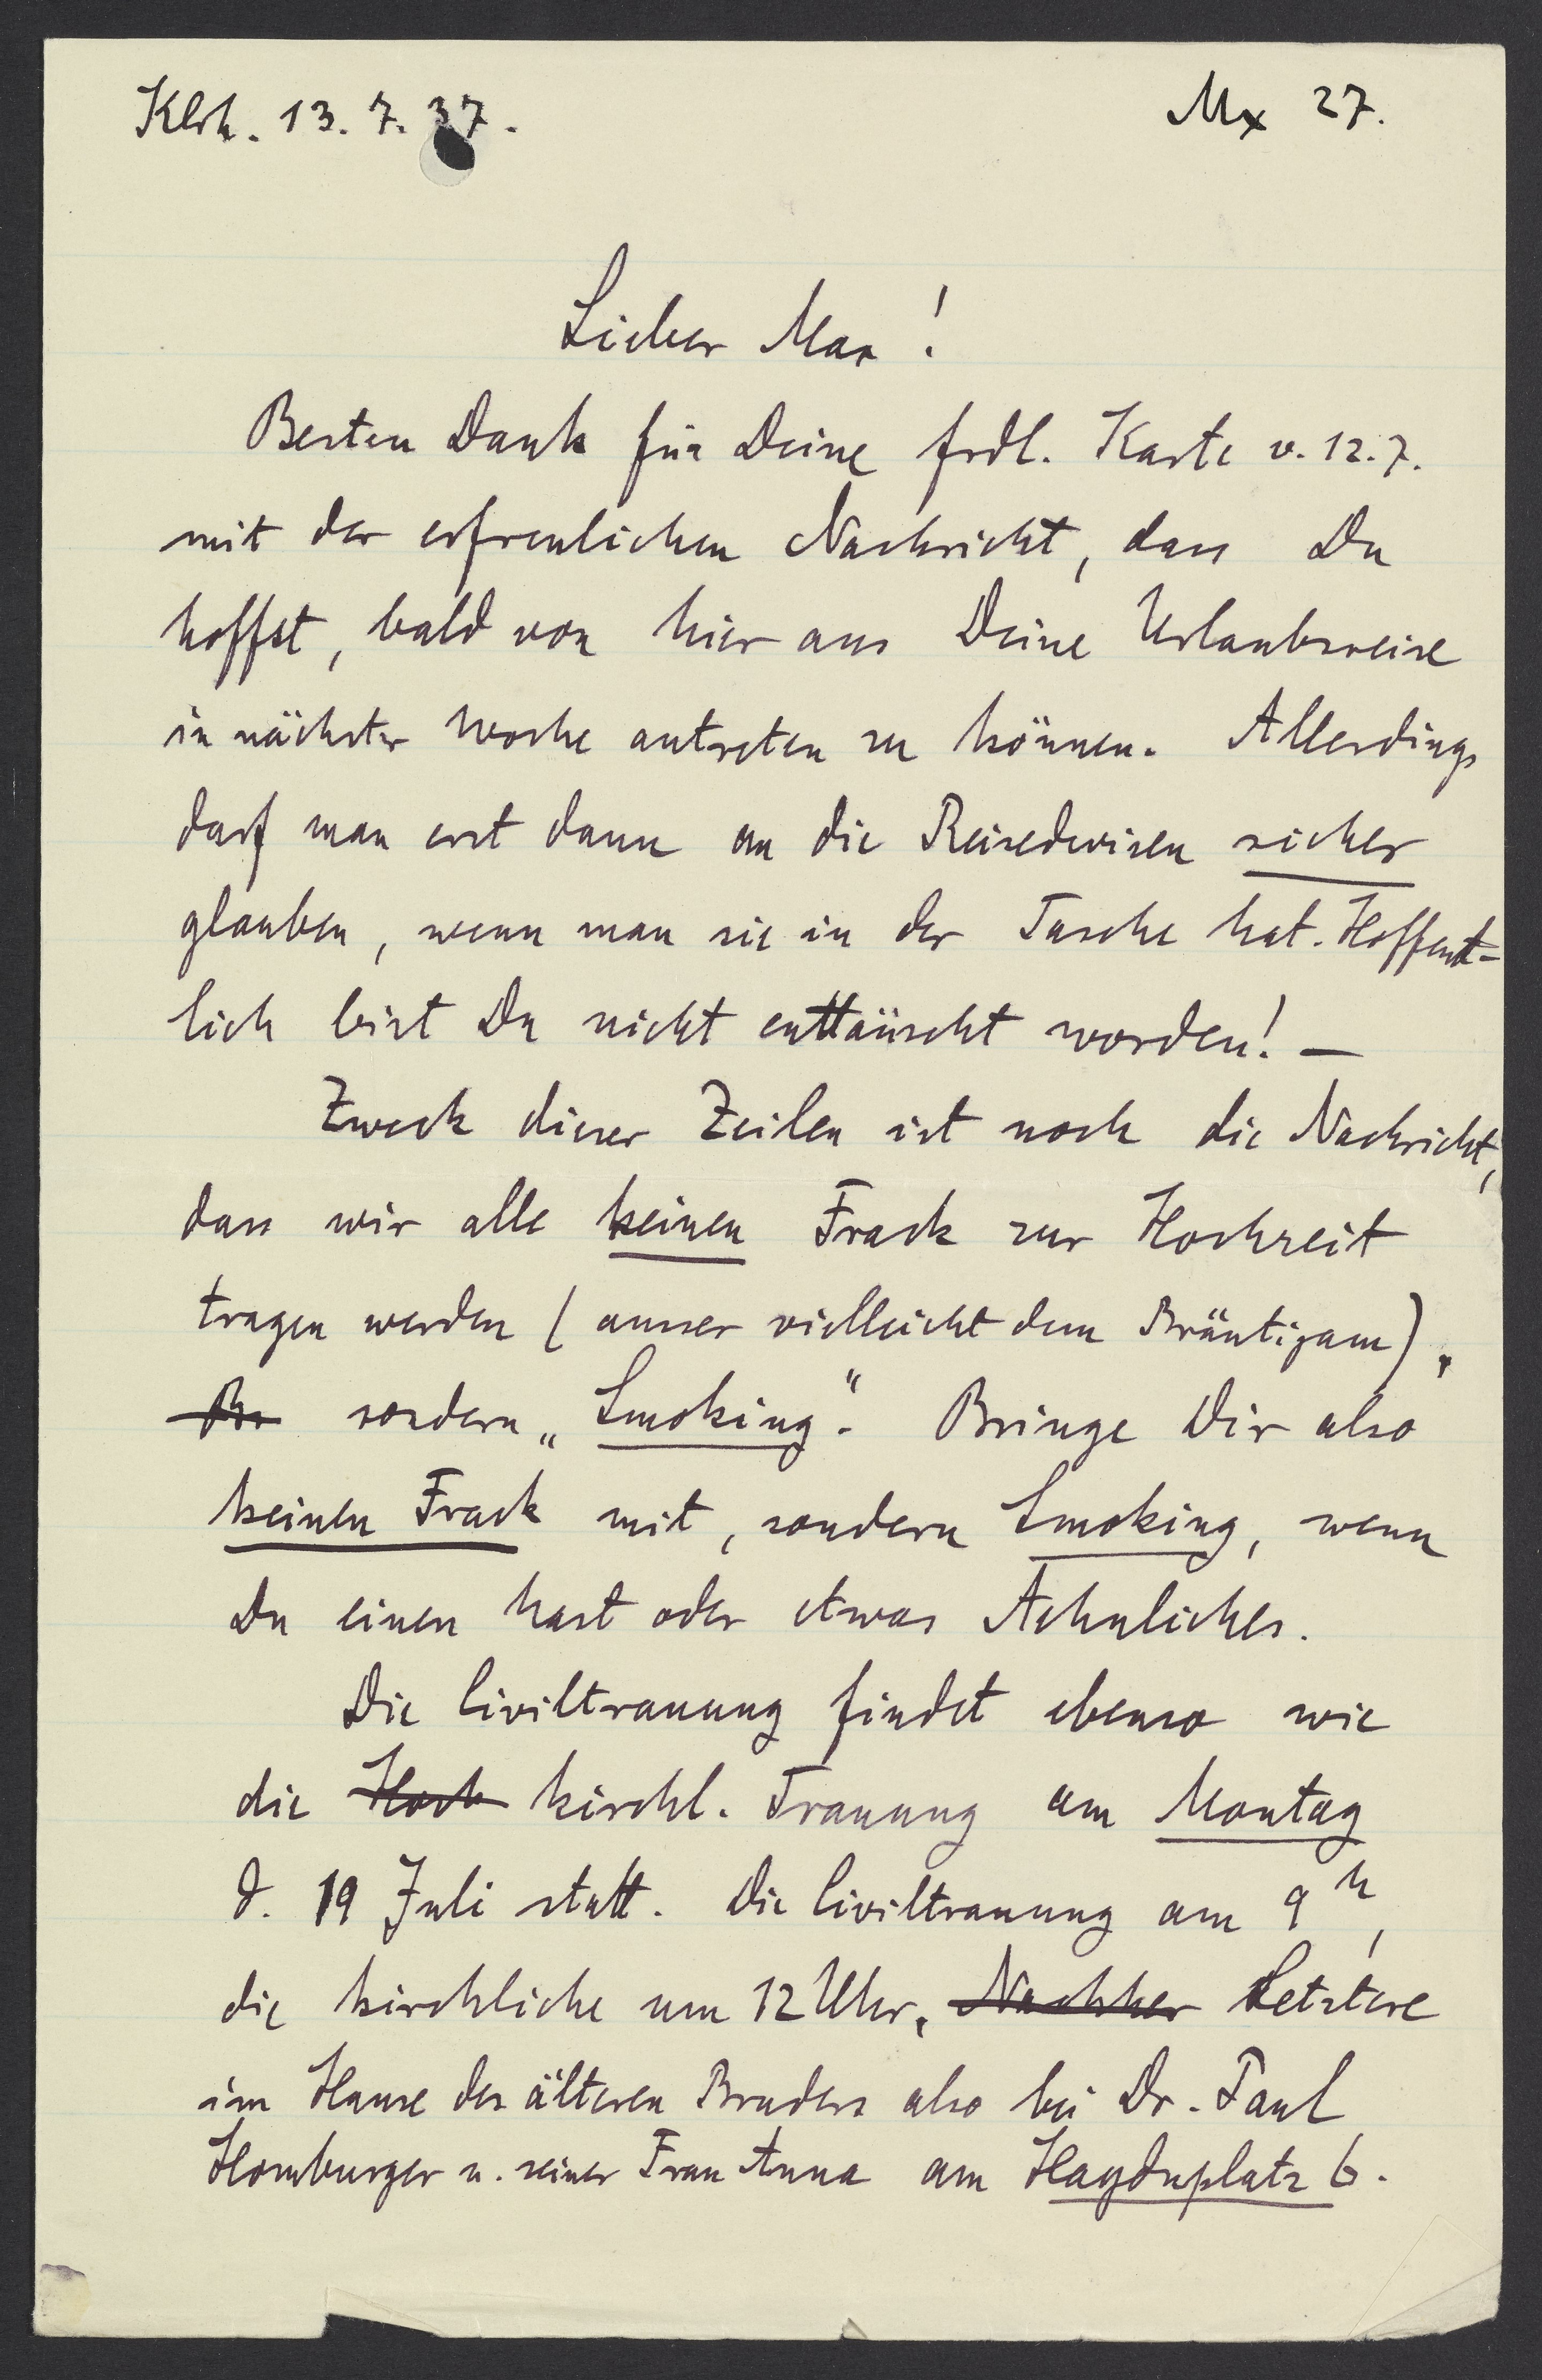 Klrh. 13. 7. 37.
Mx 27.
Lieber Max!
Besten Dank für Deine frdl. Karte v. 12.7.
mit der erfreulichen Nachricht, dass Du
hoffst, bald von hier aus Deine Urlaubsreise
in nächster Woche antreten zu können. Allerdings
darf man erst dann an die Reisedevisen sicher
glauben, wenn man sie in der Tasche hat. Hoffent-
lich bist Du nicht enttäuscht worden! —
Zweck dieser Zeilen ist noch die Nachricht,
dass wir alle keinen Frack zur Hochzeit
tragen werden (ausser vielleicht dem Bräutigam),
Br sondern „Smoking“. Bringe Dir also
keinen Frack mit, sondern Smoking, wenn
Du einen hast oder etwas Aehnliches.
Die Civiltrauung findet ebenso wie
die Hoch kirchl. Trauung am Montag
d. 19 Juli statt. Die Civiltrauung am 9 h,
die kirchliche um 12 Uhr, Nachher Letztere
im Hause des älteren Bruders also bei Dr. Paul
Homburger u. seiner Frau Anna am Haydnplatz 6.